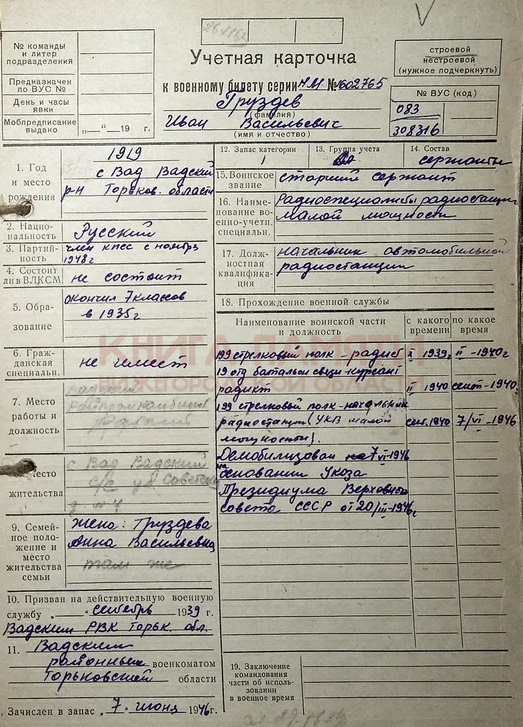 Учетная карточка
к военному билету серии НМ № 1602765
Груздев
(фамилия)
Иван Васильевич
(имя и отчество)
№ команды и литер подразделения
Предназначен по ВУС №
День и часы явки
Мобпредписание выдано „ “ 19 г.
строевой
нестроевой
(нужное подчеркнуть)
№ ВУС (код)
083
308316
1. Год и место рождения
1919
с Вад Вадский
р-н Горьков. области
2. Национальность
Русский
3. Партийность
член КПСС с ноября 1948 г
4. Состоит ли в ВЛКСМ
не состоит
5. Образование
окончил 7 классов
в 1935 г
6. Гражданская специальн.
не имеет
7. Место работы и должность
место жительства
с Вад Вадский
с/с ул Советск
9. Семейное положение и место жительства семьи
жена: Груздева
Анна Васильевна
там же
10. Призван на действительную военную
службу сентябрь 1939 г.
Вадским РВК Горьк. обл.
11. Вадским
районным военкоматом
Горьковской области
Зачислен в запас „7“ июня 1946 г.
12. Запас категории
1
13. Группа учета
14. Состав
сержанты
15. Воинское звание
старший сержант
16. Наименование военно-учетн. специальн.
Радиоспециалисты радиостанций
малой мощности
17. Должностная квалификация
начальник автомобильной
радиостанции
18. Прохождение военной службы
Наименование воинской части и должность
с какого времени
по какое время
199 стрелковый полк - радист
1939 г. II - 1940 г
19 отд батальон связи - курсант
радист II 1940 сент - 1940
199 стрелковый полк - начальник
радиостанции (УКВ малой сент. 1940 7/VI - 1946
мощности).
Демобилизован 7 VI 1946
на основании Указа
Президиума Верховного
Совета СССР от 20/III - 1946 г
19. Заключение командования части об использовании в военное время
КНИГА ПАМЯТИ
НИЖЕГОРОДСКОЙ ОБЛАСТИ